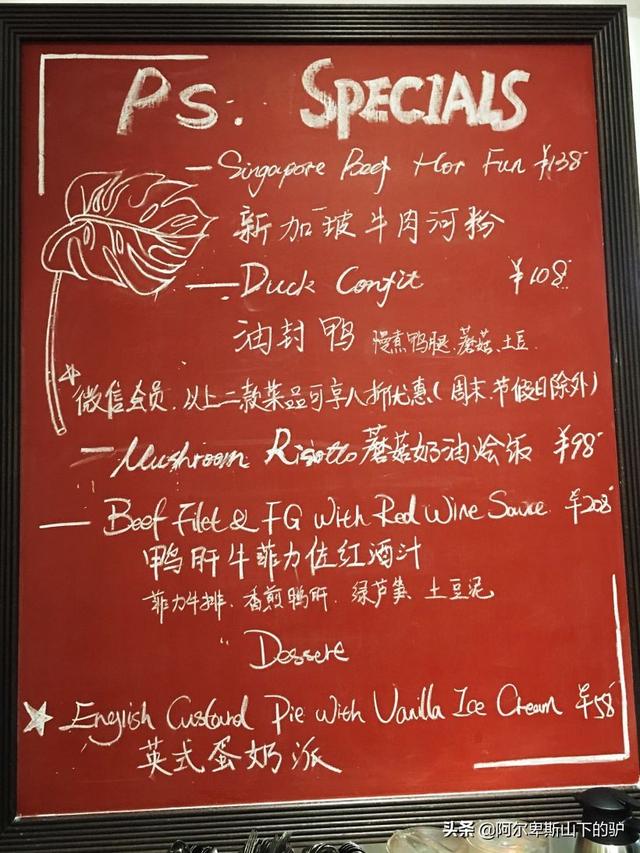 Ps. SPECIALS
— Singapore Beef Hor Fun ¥138
新加坡牛肉河粉
— Duck Confit ¥108
油封鸭 慢煮鸭腿、蘑菇、土豆
微信会员、以上二款菜品可享八折优惠(周末、节假日除外)
— Mushroom Risotto 蘑菇奶油烩饭 ¥98
— Beef Filet & FG With Red Wine Sauce ¥208
鸭肝牛菲力佐红酒汁
菲力牛排、香煎鸭肝、绿芦笋、土豆泥
Dessert
★ English Custard Pie With Vanilla Ice Cream ¥58
英式蛋奶派
头条 @阿尔卑斯山下的驴